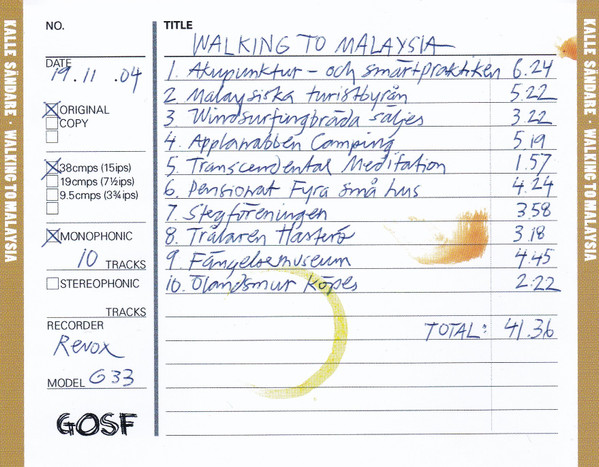 KALLE SÄNDARE · WALKING TO MALAYSIA
NO.
DATE
19.11 .04
ORIGINAL
COPY
38cmps (15ips)
19cmps (7½ips)
9.5cmps (3¾ips)
MONOPHONIC
10 TRACKS
STEREOPHONIC
TRACKS
RECORDER
Revox
MODEL G33
GOSF
TITLE
WALKING TO MALAYSIA
1. Akupunktur - och smärtpraktiken 6.24
2 Malaysiska turistbyrån 5.22
3 Windsurfingbräda säljes 3.22
4. Applarabben Camping 5.19
5. Transcendental Meditation 1.57
6. Pensionat Fyra små hus 4.24
7. Stegföreningen 3.58
8. Trålaren Hasterö 3.18
9. Fängelsemuseum 4.45
10. Ölandsmur köpes 2.22
TOTAL: 41.36
KALLE SÄNDARE · WALKING TO MALAYSIA